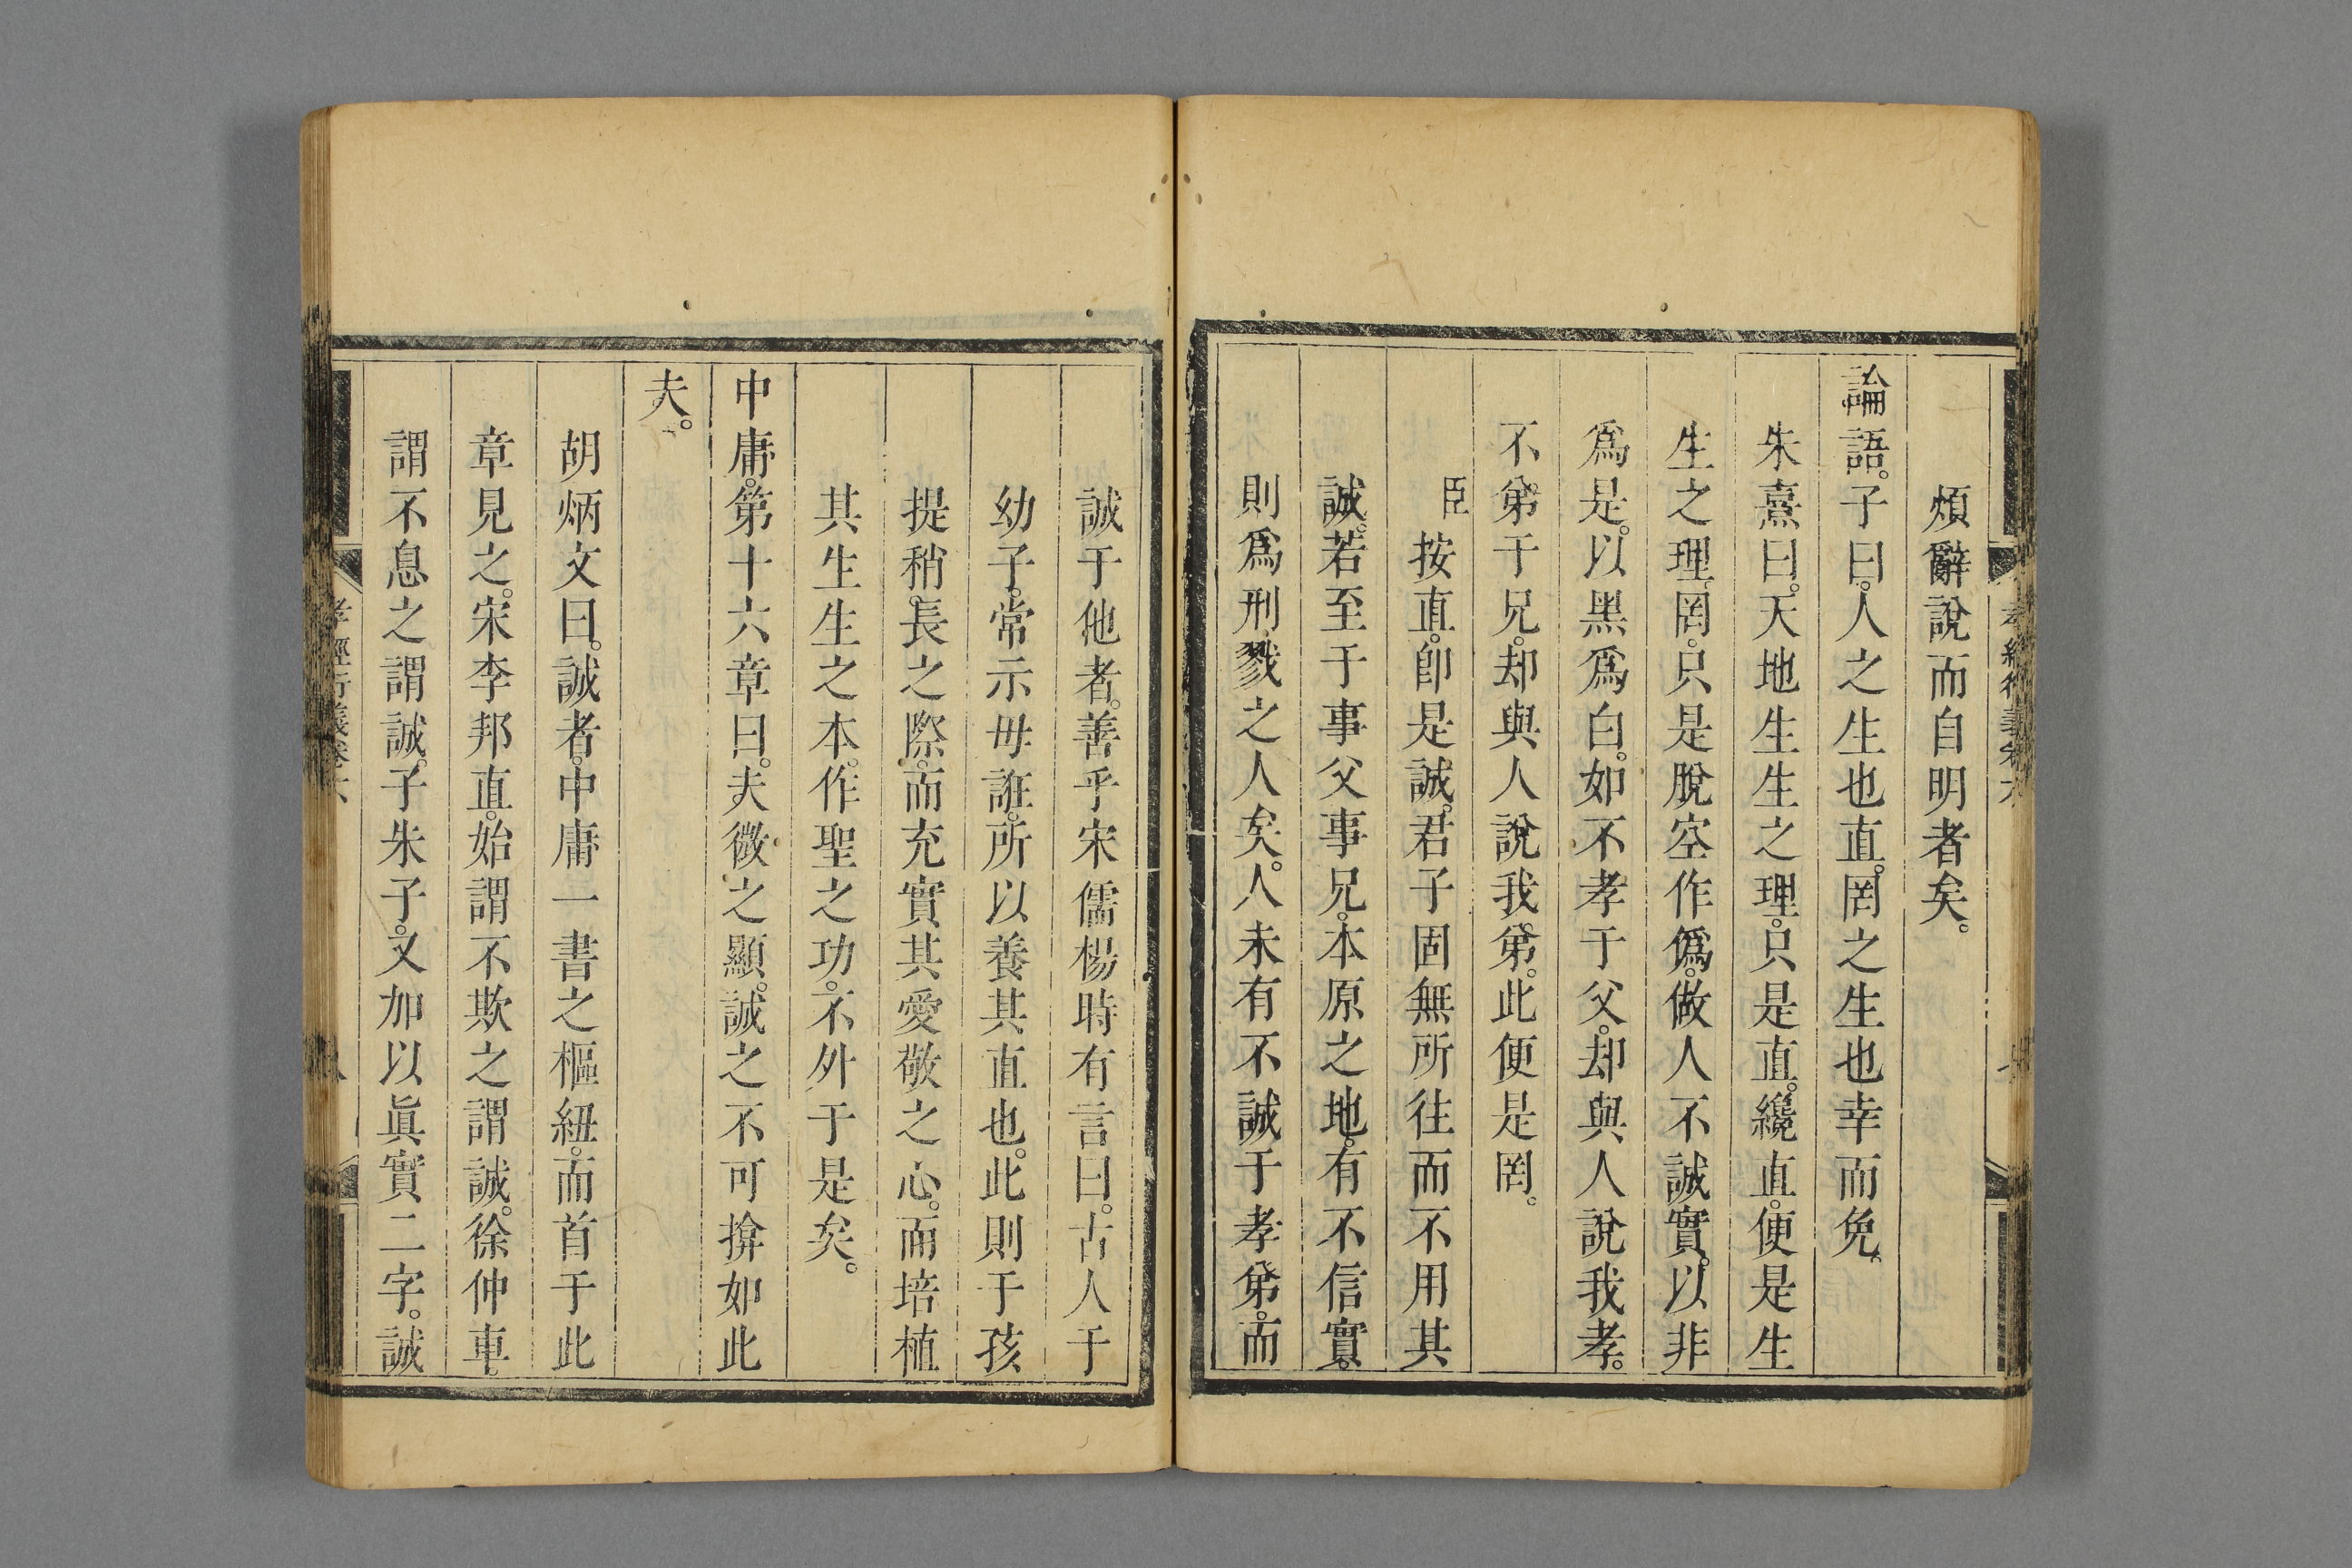 煩辭說而自明者矣。
論語。子曰。人之生也直。罔之生也幸而免。
朱熹曰。天地生生之理。只是直。纔直。便是生
生之理。罔。只是脫空作僞。做人不誠實。以非
爲是。以黑爲白。如不孝于父。却與人說我孝。
不弟于兄。却與人說我弟。此便是罔。
臣按直。卽是誠。君子固無所往而不用其
誠。若至于事父事兄。本原之地。有不信實。
則爲刑戮之人矣。人未有不誠于孝弟。而
誠于他者。善乎宋儒楊時有言曰。古人于
幼子。常示毋誑。所以養其直也。此則于孩
提稍長之際。而充實其愛敬之心。而培植
其生生之本。作聖之功。不外于是矣。
中庸。第十六章曰。夫微之顯。誠之不可揜如此
夫。
胡炳文曰。誠者。中庸一書之樞紐。而首于此
章見之。宋李邦直。始謂不欺之謂誠。徐仲車。
謂不息之謂誠。子朱子。又加以眞實二字。誠
孝經衍義卷六